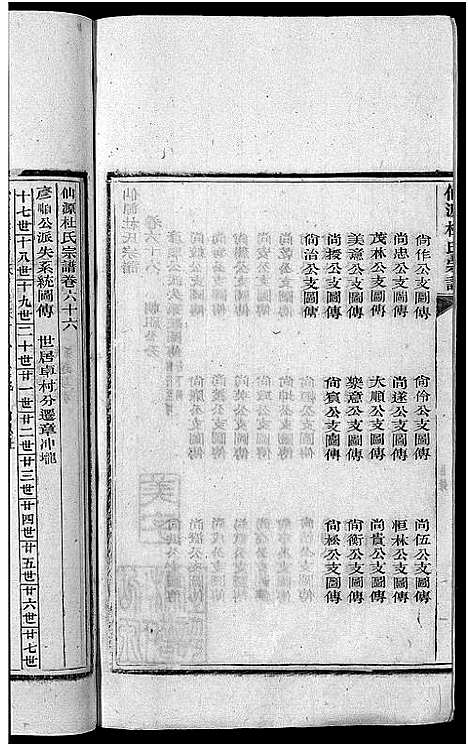 仙源杜氏宗譜
尚作公支圖傳　尚伶公支圖傳　尚伍公支圖傳
尚忠公支圖傳　尚遂公支圖傳　恒林公支圖傳
茂林公支圖傳　大順公支圖傳　尚貴公支圖傳
美意公支圖傳　樂意公支圖傳　尚衡公支圖傳
尚授公支圖傳　尚賓公支圖傳　尚松公支圖傳
尚治公支圖傳
仙源杜氏宗譜卷六十六
彥順公派失系統圖傳　世居卓村分遷章冲壠
十七世十八世十九世二十世廿一世廿二世廿三世廿四世廿五世廿六世廿七世